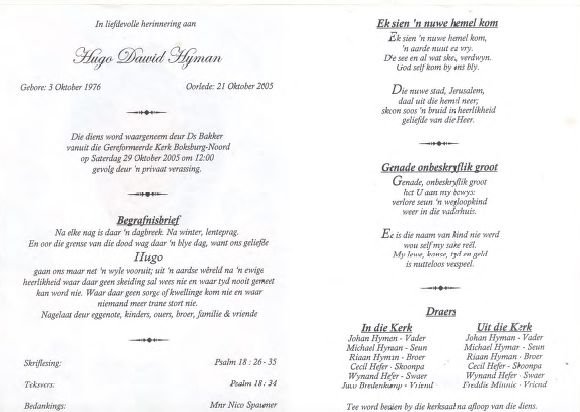 In liefdevolle herinnering aan
Hugo Dawid Hyman
Gebore: 3 Oktober 1976 Oorlede: 21 Oktober 2005
Die diens word waargeneem deur Ds Bakker
vanuit die Gereformeerde Kerk Boksburg-Noord
op Saterdag 29 Oktober 2005 om 12:00
gevolg deur 'n privaat verassing.
Begrafnisbrief
Na elke nag is daar 'n dagbreek. Na winter, lenteprag.
En oor die grense van die dood wag daar 'n blye dag, want ons geliefde
Hugo
gaan ons maar net 'n wyle vooruit; uit 'n aardse wêreld na 'n ewige
heerlikheid waar daar geen skeiding sal wees nie en waar tyd nooit gemeet
kan word nie. Waar daar geen sorge of kwellinge kom nie en waar
niemand meer trane stort nie.
Nagelaat deur eggenote, kinders, ouers, broer, familie & vriende
Skriflesing: Psalm 18 : 26 - 35
Teksvers: Psalm 18 : 34
Bedankings: Mnr Nico Spaumer
Ek sien 'n nuwe hemel kom
Ek sien 'n nuwe hemel kom,
'n aarde nuut en vry.
Die see en al wat skei, verdwyn.
God self kom by ons bly.
Die nuwe stad, Jerusalem,
daal uit die hemel neer;
skoon soos 'n bruid in heerlikheid
geliefde van die Heer.
Genade onbeskryflik groot
Genade, onbeskryflik groot
het U aan my bewys:
verlore seun 'n wegloopkind
weer in die vaderhuis.
Ek is die naam van kind nie werd
wou self my sake reël.
My lewe, kanse, tyd en geld
is nutteloos verspeel.
Draers
In die Kerk
Johan Hyman - Vader
Michael Hyman - Seun
Riaan Hyman - Broer
Cecil Hefer - Skoonpa
Wynand Hefer - Swaer
Jaco Bredenkamp - Vriend
Uit die Kerk
Johan Hyman - Vader
Michael Hyman - Seun
Riaan Hyman - Broer
Cecil Hefer - Skoonpa
Wynand Hefer - Swaer
Freddie Minnie - Vriend
Tee word bedien by die kerksaal na afloop van die diens.